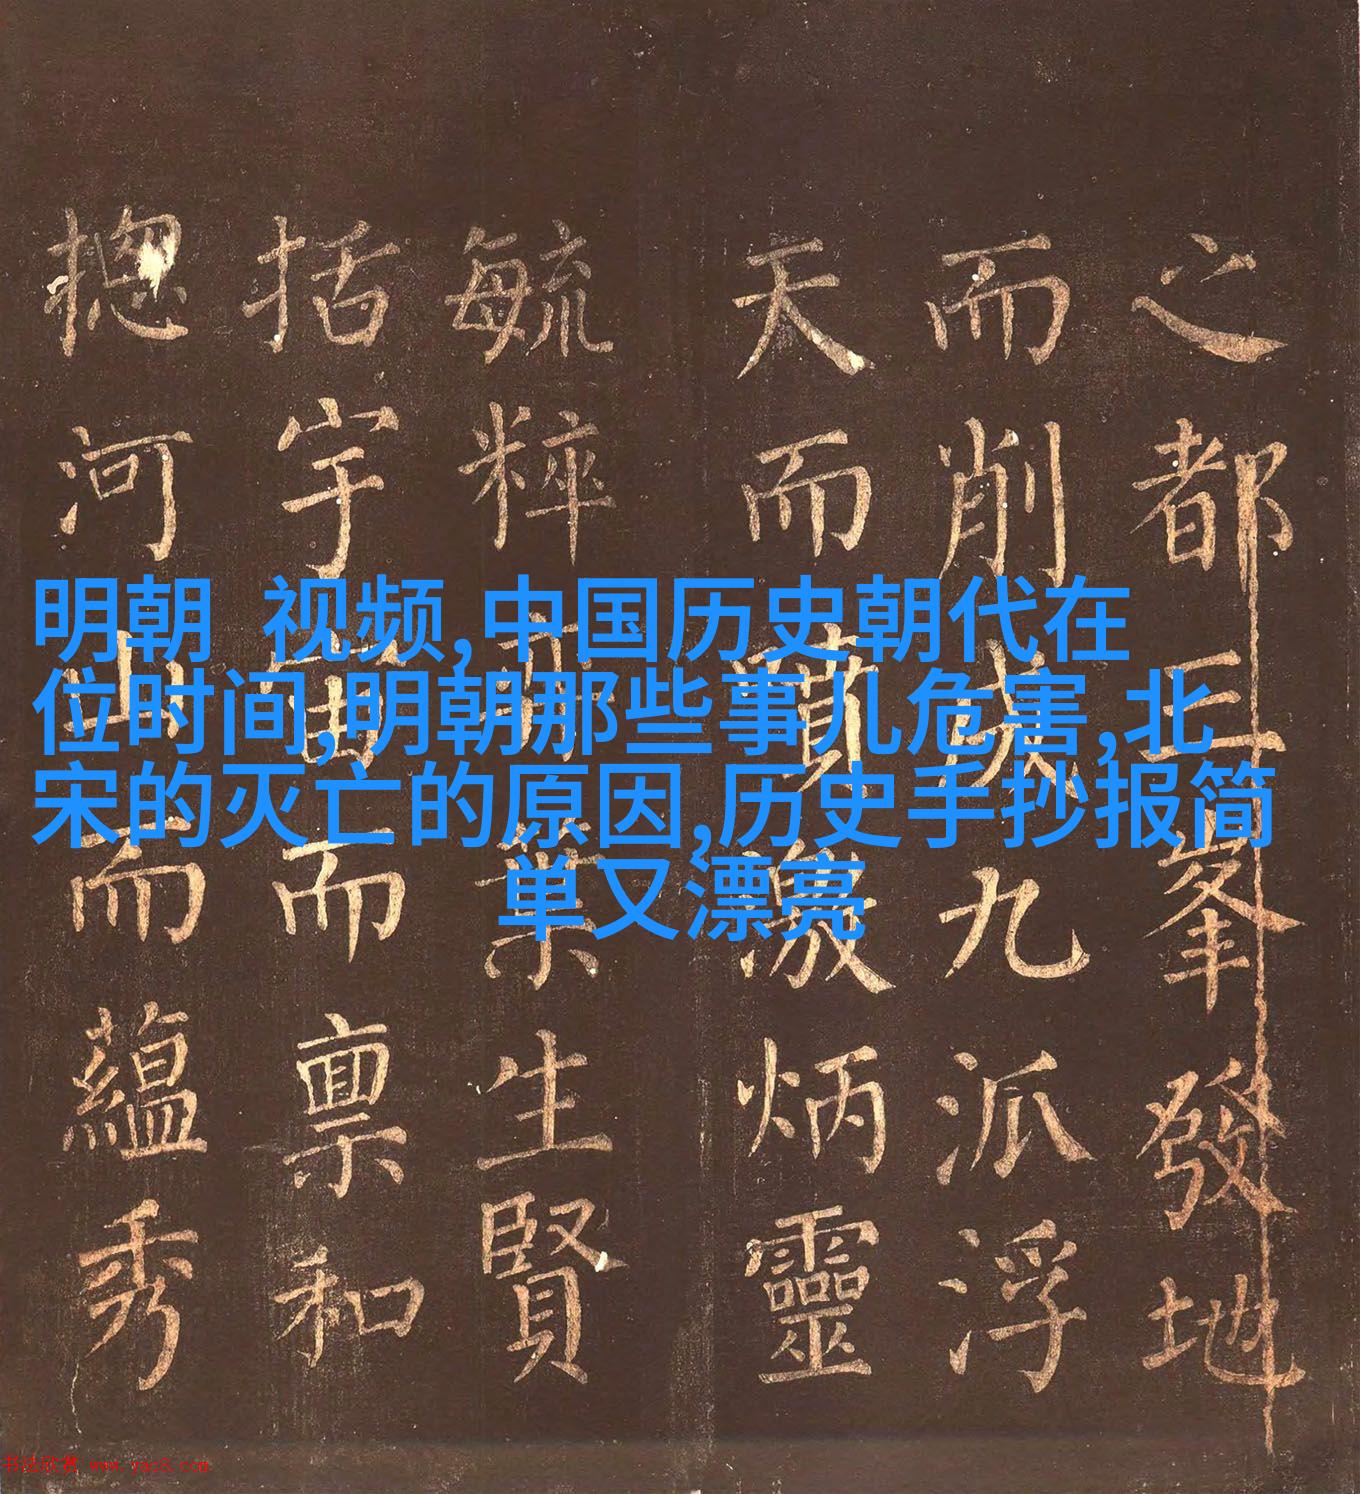 之都三峯發地
而削成九派浮
天而噴激炳靈
毓粹生賢
括宇宙而禀和
揔河山而蘊秀
明朝 视频,中国历史朝代在
位时间,明朝那些事儿危害,北
宋的灭亡的原因,历史手抄报简
单又漂亮
书法欣赏 www.yac8.com